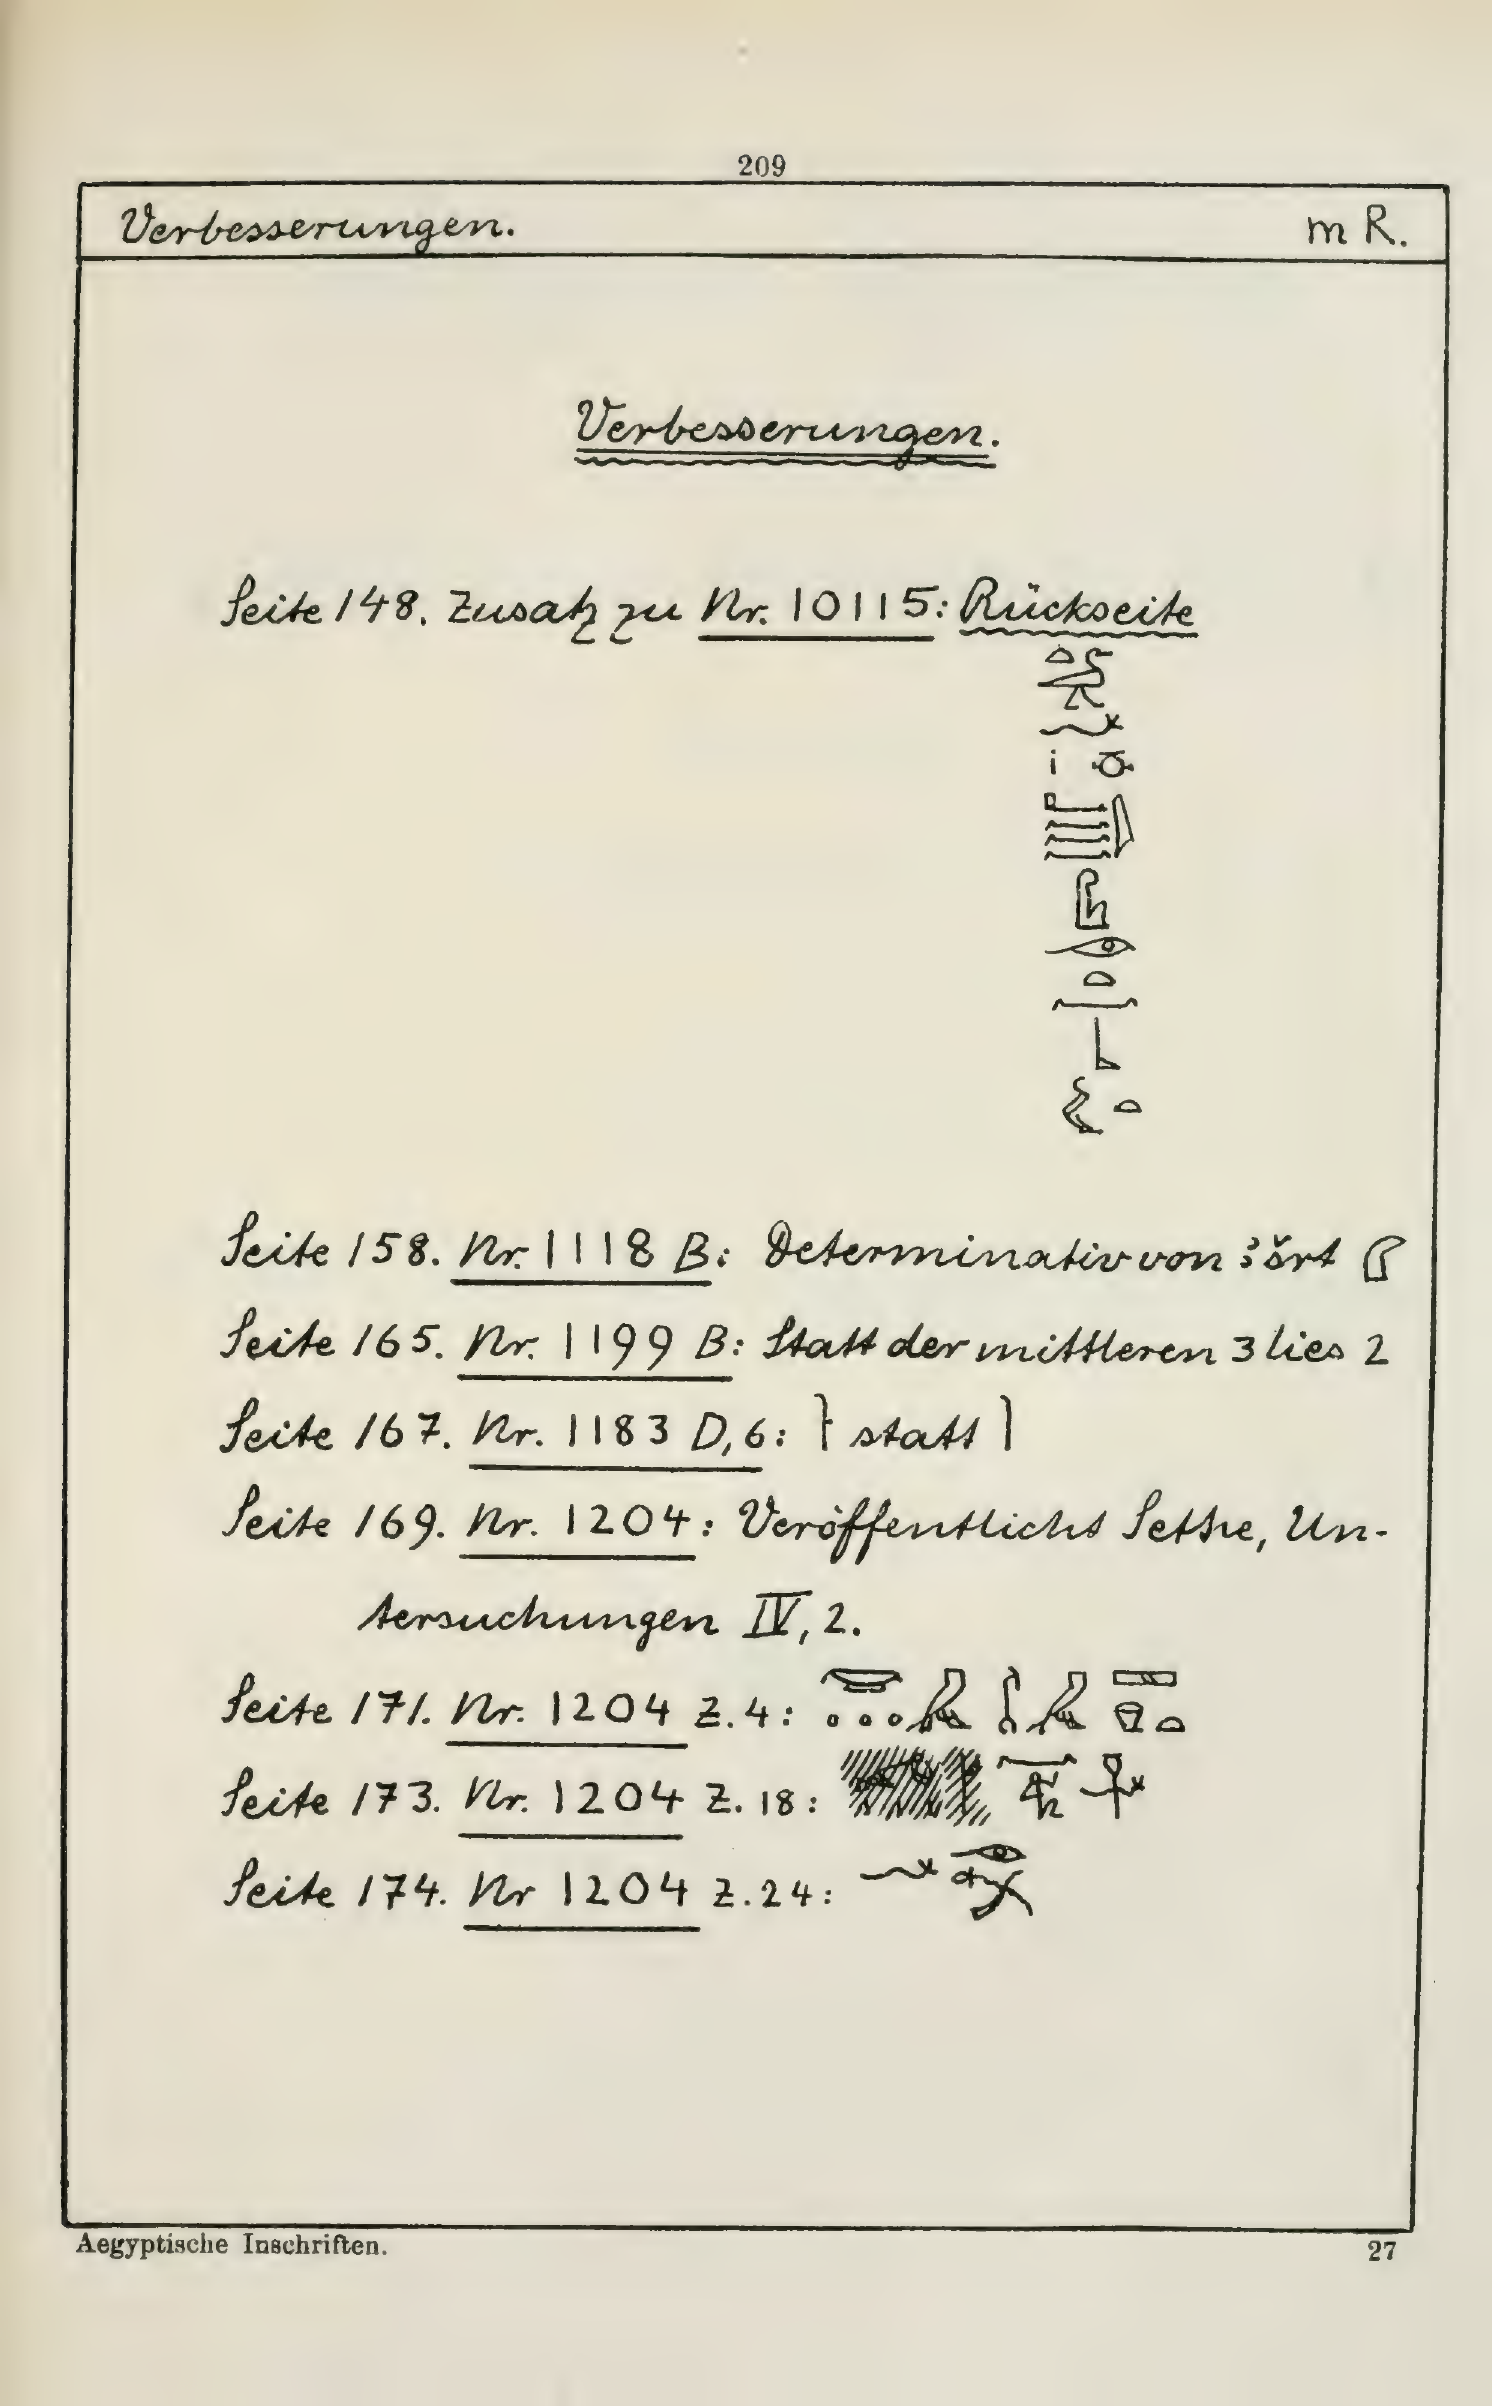 209
Verbesserungen. m R.
Verbesserungen.
Seite 148. Zusatz zu Nr. 10115: Rückseite
Seite 158. Nr. 1118 B: Determinativ von išrt
Seite 165. Nr. 1199 B: Statt der mittleren 3 lies 2
Seite 167. Nr. 1183 D, 6: statt
Seite 169. Nr. 1204: Veröffentlicht Sethe, Un-
tersuchungen IV, 2.
Seite 171. Nr. 1204 Z. 4:
Seite 173. Nr. 1204 Z. 18:
Seite 174. Nr 1204 Z. 24:
Aegyptische Inschriften. 27